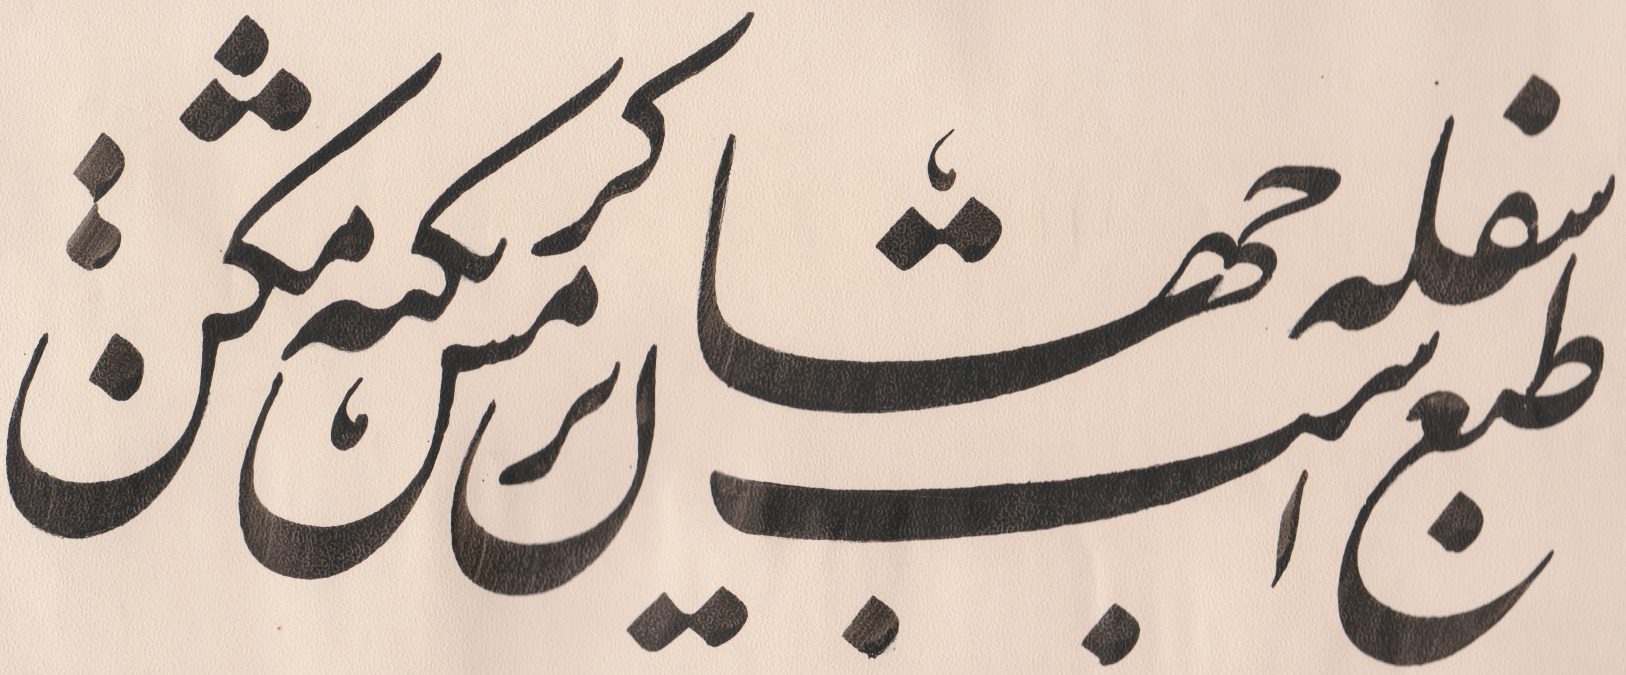 سفله طبع است جهان بر کرمش تکیه مکن